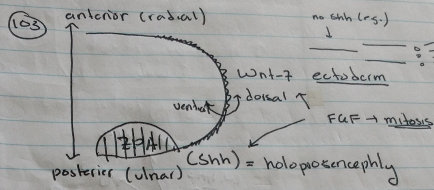 103
anterior (radial)
no shh (e.g.)
Wnt-7 ectoderm
ventral dorsal
FGF → mitosis
ZPA
(shh) = holoprosencephly
posterior (ulnar)